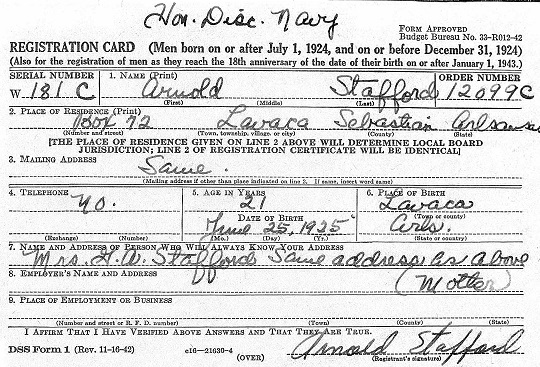 Hon. Disc. Navy
FORM APPROVED
Budget Bureau No. 33-R012-42
REGISTRATION CARD (Men born on or after July 1, 1924, and on or before December 31, 1924)
(Also for the registration of men as they reach the 18th anniversary of the date of their birth on or after January 1, 1943.)
SERIAL NUMBER 1. NAME (Print) ORDER NUMBER
W. 181 C Arnold Stafford 12099C
(First) (Middle) (Last)
2. PLACE OF RESIDENCE (Print)
Box 72 Lavaca Sebastian Arkansas
(Number and street) (Town, township, village, or city) (County) (State)
[THE PLACE OF RESIDENCE GIVEN ON LINE 2 ABOVE WILL DETERMINE LOCAL BOARD
JURISDICTION; LINE 2 OF REGISTRATION CERTIFICATE WILL BE IDENTICAL]
3. MAILING ADDRESS
Same.
(Mailing address if other than place indicated on line 2. If same, insert word same)
4. TELEPHONE 5. AGE IN YEARS 6. PLACE OF BIRTH
no. 21 Lavaca
DATE OF BIRTH (Town or county)
June 25, 1925 Ark.
(Exchange) (Number) (Mo.) (Day) (Yr.) (State or country)
7. NAME AND ADDRESS OF PERSON WHO WILL ALWAYS KNOW YOUR ADDRESS
Mrs. Stafford Same address as above
8. EMPLOYER'S NAME AND ADDRESS (Mother)
9. PLACE OF EMPLOYMENT OR BUSINESS
(Number and street or R. F. D. number) (Town) (County) (State)
I AFFIRM THAT I HAVE VERIFIED ABOVE ANSWERS AND THAT THEY ARE TRUE.
DSS Form 1 (Rev. 11-16-42) e16-21630-4 Arnold Stafford
(OVER) (Registrant's signature)